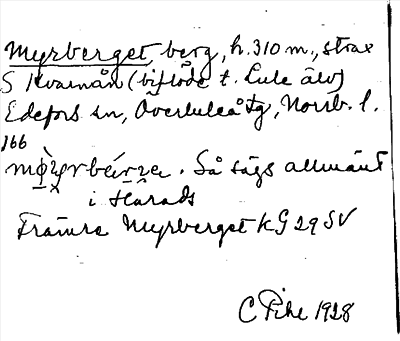 Myrberget, berg, h. 310 m., strax
S Kvarnån (biflöde t. Lule älv)
Edefors sn, Överluleå tg, Norrb. l.
166
Så sägs allmänt
i Harads
Främre Myrberget KG 29 SV
C Pihl 1928